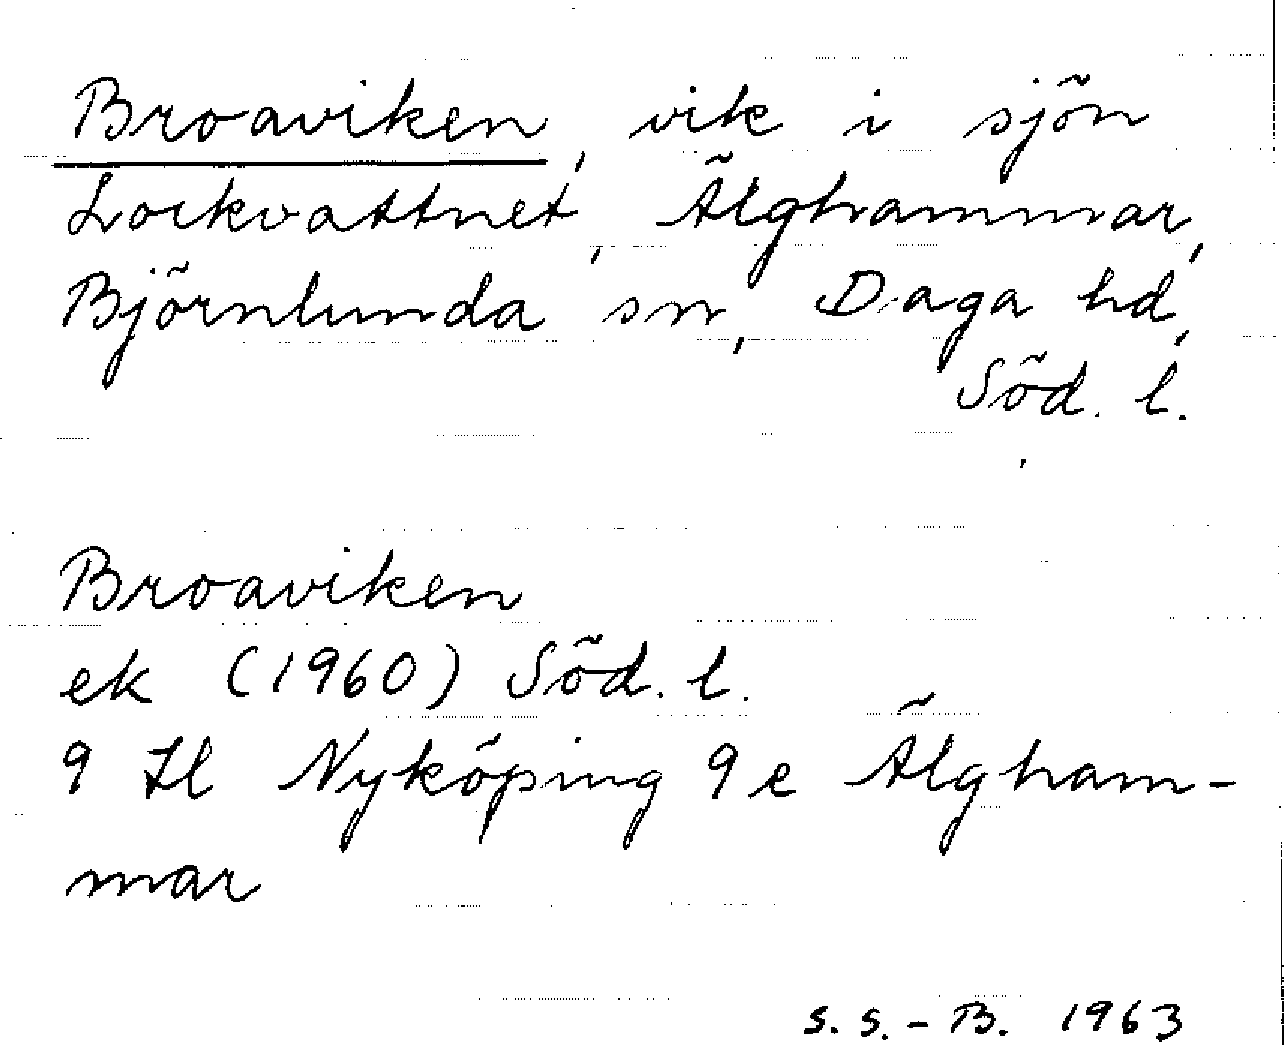 Broaviken, vik i sjön
Lockvattnet, Älghammar,
Björnlunda sn, Daga hd,
Söd. l.
Broaviken
ek (1960) Söd. l.
9 Il Nyköping 9e Älgham-
mar
S. S. - B. 1963